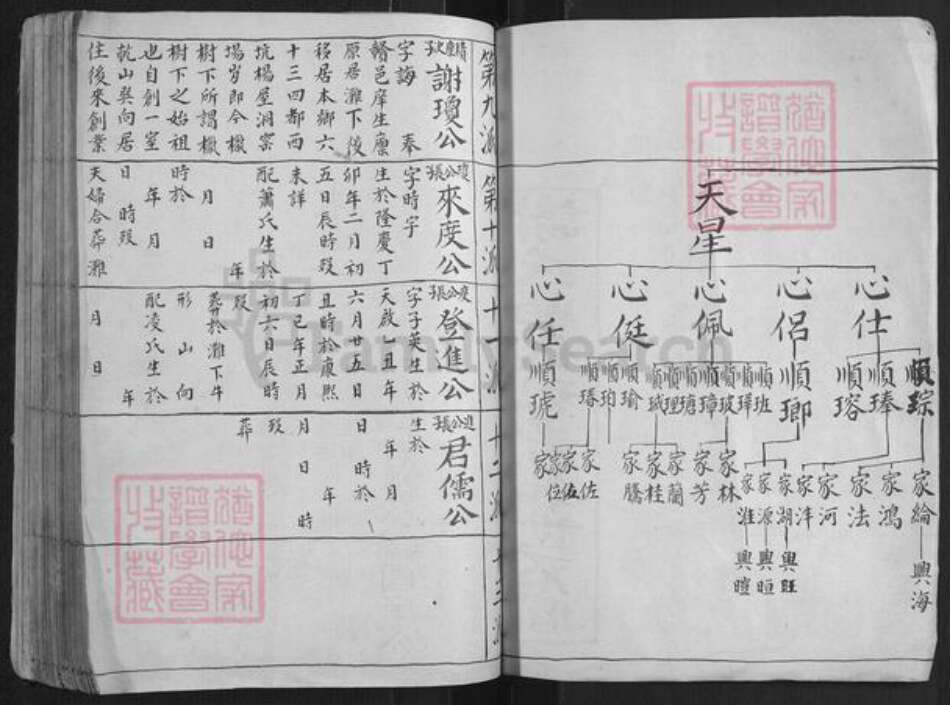 天星
心仕
心侶
心佩
心侹
心任
順琮
順瑃
順瑢
順瑯
順班
順璍
順玻
順璋
順瑭
順理
順珹
順瑜
順珀
順瑃
順琥
家綸
家鴻
家法
家河
家洋
家湖
家源
家淮
家林
家芳
家蘭
家桂
家騰
家佐
家伍
家位
興海
興旺
興晅
興暟
第九派
謝瓊公
字誨 奉
贛邑摩生廬
原居灘下後
移居本鄉六
十三四都西
坑楊屋洞窑
場岁即今橄
樹下所謂橄
樹下之始祖
也自創一室
乾山巽向居
住後來創業
第十派
瓊公長子
來度公
字時字
生於隆慶丁
卯年二月初
五日辰時歿
未詳
配蕭氏生於
年
月 日
時於
年 月
日 時歿
夫婦合葬灘
十一派
度公長子
登進公
字子英生於
天啟乙丑年
六月廿五日
丑時於康熙
丁巳年正月
初六日辰時
歿
葬於灘下牛
形山向
配凌氏生於
年
月 日
十二派
進公長子
君儒公
生於
年 月
日 時於
年
月 日 時
歿
葬
十三派
譜學會
收藏
譜學會
收藏
FamilySearch